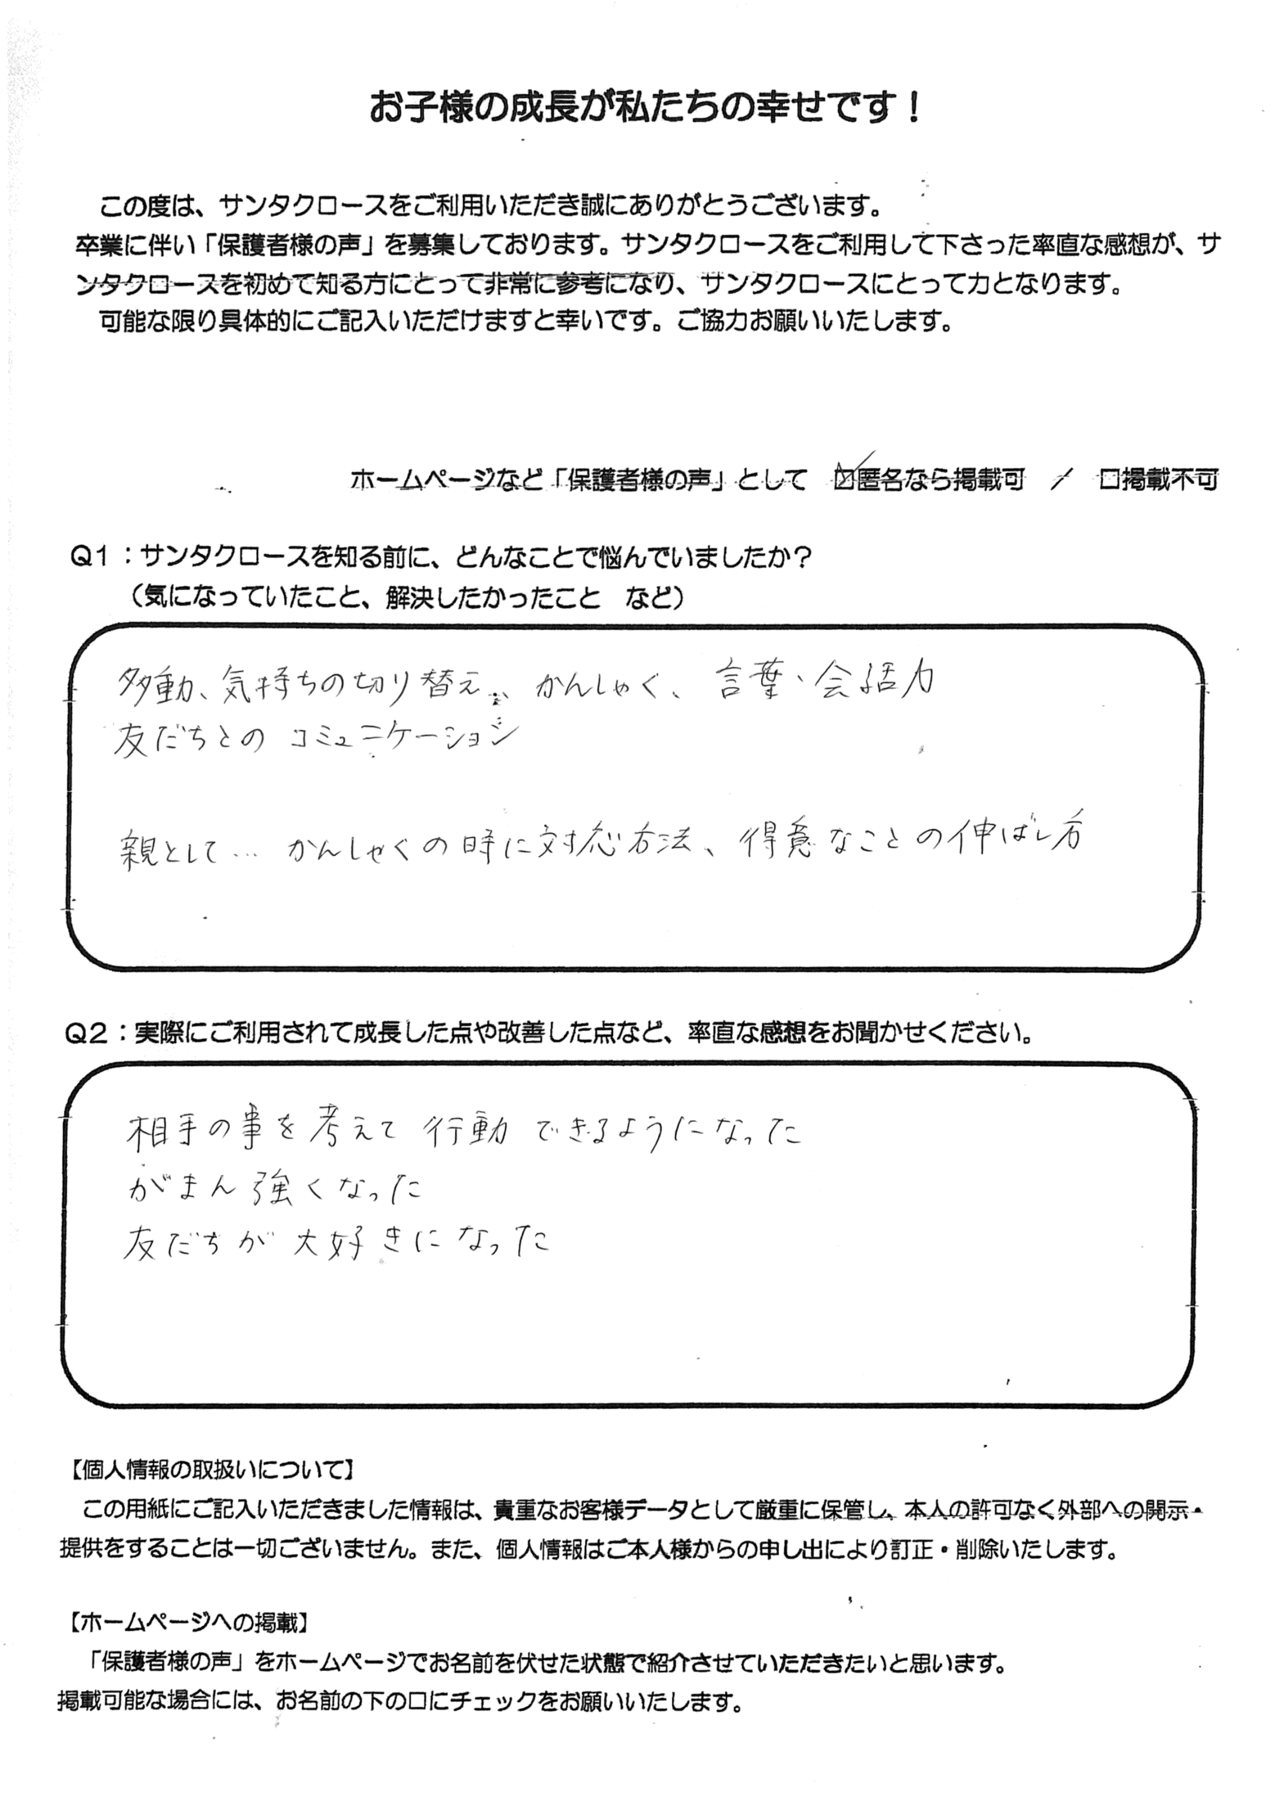 お子様の成長が私たちの幸せです！
この度は、サンタクロースをご利用いただき誠にありがとうございます。
卒業に伴い「保護者様の声」を募集しております。サンタクロースをご利用して下さった率直な感想が、サ
ンタクロースを初めて知る方にとって非常に参考になり、サンタクロースにとって力となります。
可能な限り具体的にご記入いただけますと幸いです。ご協力お願いいたします。
ホームページなど「保護者様の声」として ☑匿名なら掲載可 / □掲載不可
Q1：サンタクロースを知る前に、どんなことで悩んでいましたか？
（気になっていたこと、解決したかったこと など）
多動、気持ちの切り替え、かんしゃく、言葉・会話力
友だちとのコミュニケーション
親として… かんしゃくの時に対応方法、得意なことの伸ばし方
Q2：実際にご利用されて成長した点や改善した点など、率直な感想をお聞かせください。
相手の事を考えて行動できるようになった
がまん強くなった
友だちが大好きになった
【個人情報の取扱いについて】
この用紙にご記入いただきました情報は、貴重なお客様データとして厳重に保管し、本人の許可なく外部への開示・
提供をすることは一切ございません。また、個人情報はご本人様からの申し出により訂正・削除いたします。
【ホームページへの掲載】
「保護者様の声」をホームページでお名前を伏せた状態で紹介させていただきたいと思います。
掲載可能な場合には、お名前の下の口にチェックをお願いいたします。